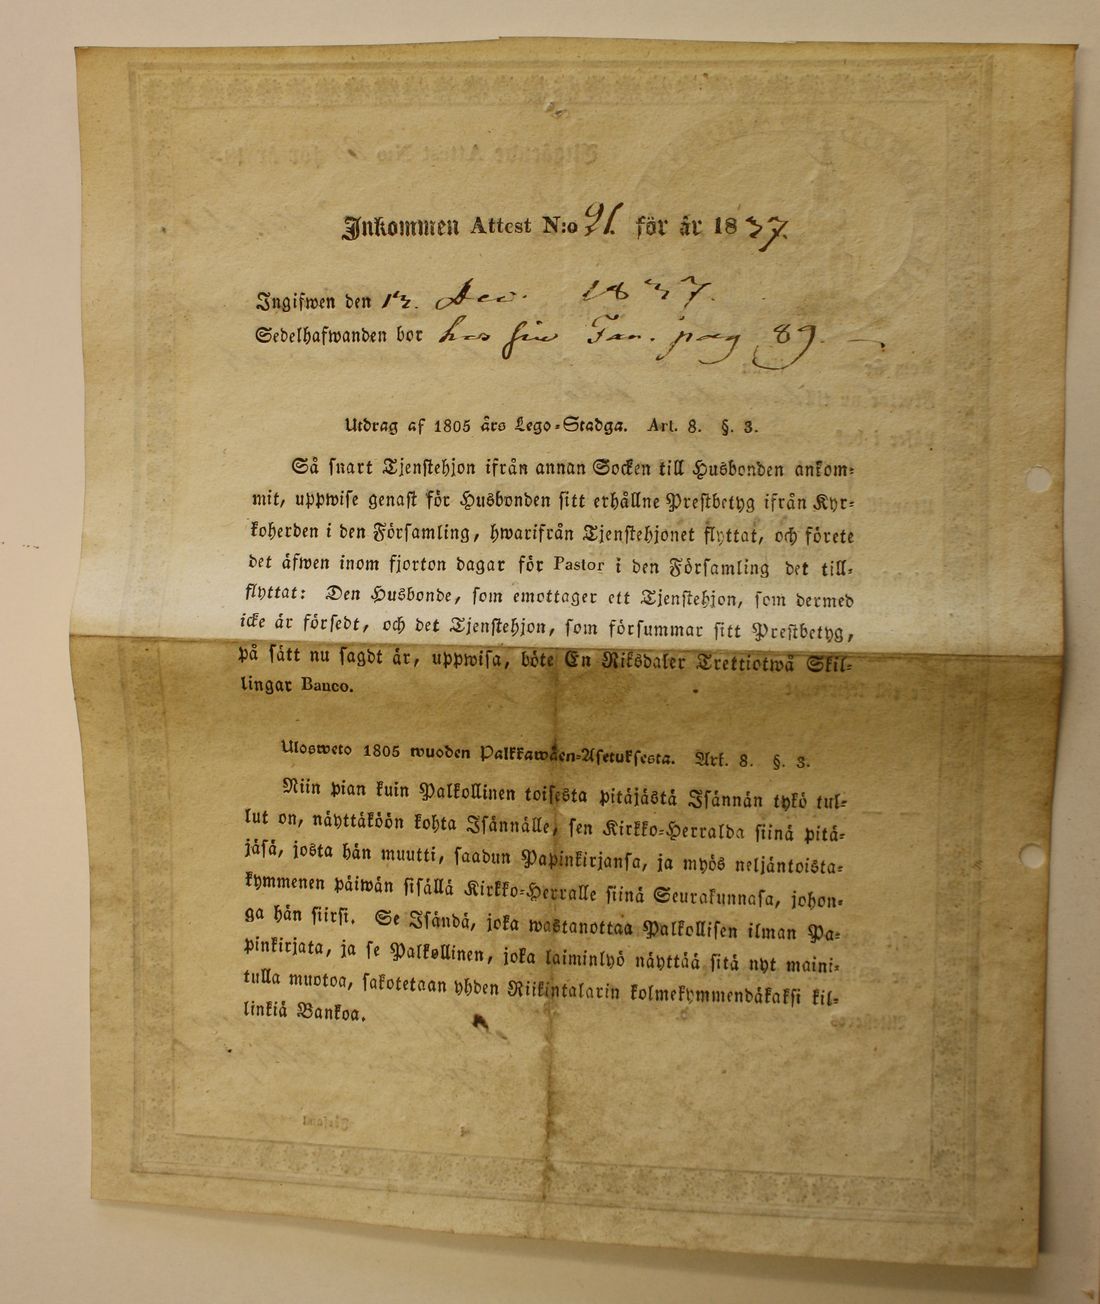 Inkommen Attest N:o 91. för år 1837.
Ingifwen den 13. Dec. 1837.
Sedelhafwanden bor hos sin Fam. pag 89.
Utdrag af 1805 års Lego-Stadga. Art. 8. §. 3.
Så snart Tjenstehjon ifrån annan Socken till Husbonden ankom-
mit, uppwise genast för Husbonden sitt erhållne Prestbetyg ifrån Kyr-
koherden i den Församling, hwarifrån Tjenstehjonet flyttat, och förete
det äfwen inom fjorton dagar för Pastor i den Församling det till-
flyttat: Den Husbonde, som emottager ett Tjenstehjon, som dermed
icke är försedt, och det Tjenstehjon, som försummar sitt Prestbetyg,
på sätt nu sagdt är, uppwisa, böte En Riksdaler Trettiotwå Skil-
lingar Banco.
Ulosweto 1805 wuoden Palkkawäen-Asetuksesta. Art. 8. §. 3.
Niin pian kuin Palkollinen toisesta pitäjästä Isännän tykö tul-
lut on, näyttäköön kohta Isännälle, sen Kirkko-Herralda siinä pitä-
jäsä, josta hän muutti, saadun Papinkirjansa, ja myös neljäntoista-
kymmenen päiwän sisällä Kirkko-Herralle siinä Seurakunnasa, johon-
ga hän siirsi. Se Isändä, joka wastanottaa Palkollisen ilman Pa-
pinkirjata, ja se Palkollinen, joka laiminlyö näyttää sitä nyt maini-
tulla muotoa, sakotetaan yhden Riikintalarin kolmekymmendäkaksi kil-
linkiä Bankoa.